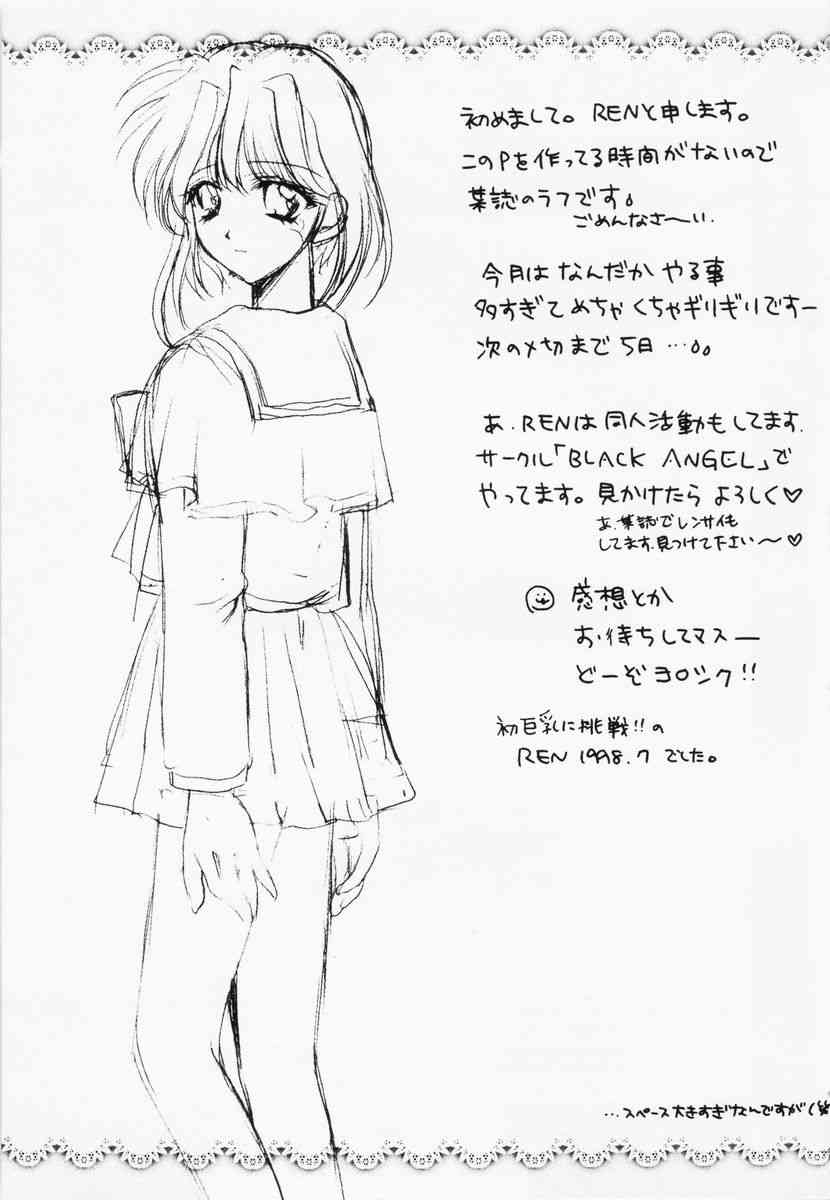 初めまして。RENと申します。
このPを作ってる時間がないので
葉誌のラフです。
ごめんなさ〜い.
今月は なんだか やる事
多すぎて めちゃくちゃギリギリですー
次の〆切まで 5日 …。。
あ.RENは 同人活動もしてます.
サークル「BLACK ANGEL」で
やってます。見かけたら よろしく♡
あ.葉誌でレンサイも
してます.見つけて下さい〜♡
感想とか
お待ちしてマスー
どーぞヨロシク!!
初巨乳に挑戦!!の
REN 1998.7 でした。
…スペース大きすぎなんですが(笑